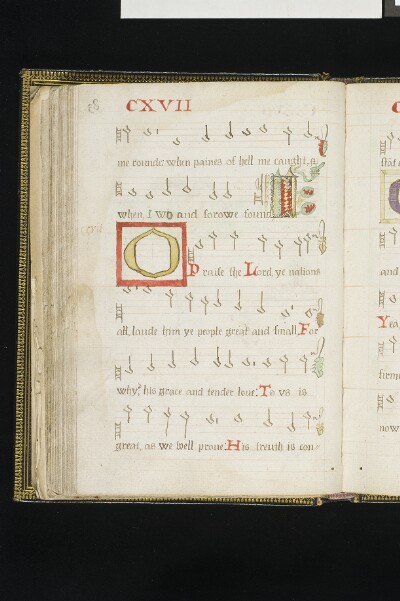 83 CXVII
me rounde: when paines of hell me caught, &
when I wo and sorowe found
CXVII
O praise the Lord, ye nations
all, laude him ye people great and small For
why? his grace and tender loue: To vs is
great, as we well proue: His trewth is con=
C
and
Yea,
firme
now